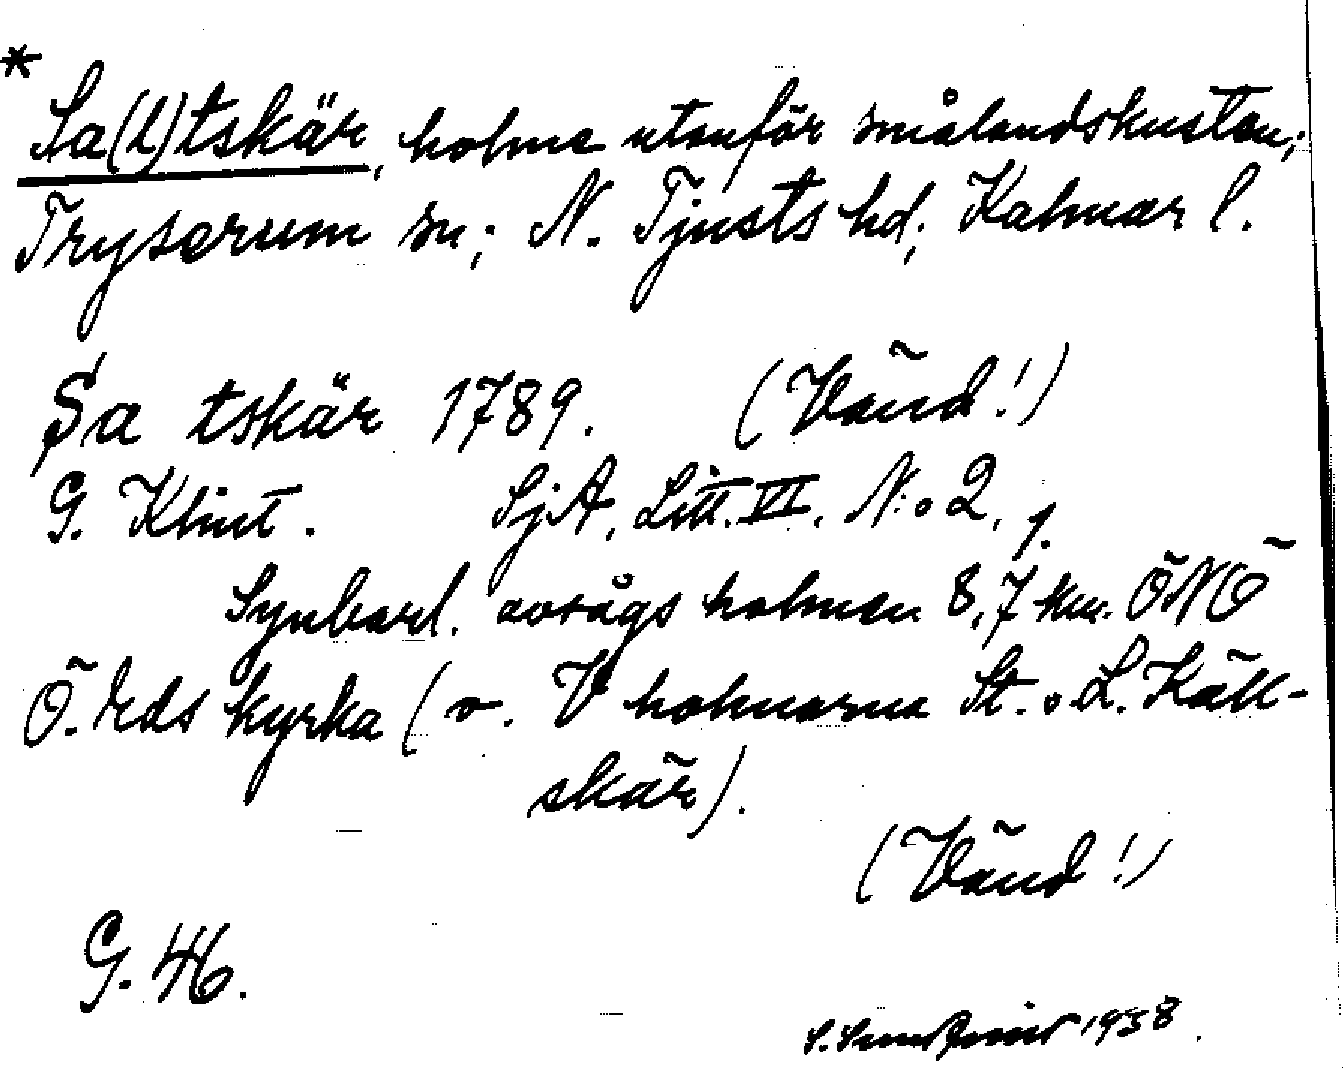 *
Sa(l)tskär, holme utanför smålandskusten;
Tryserum sn; N. Tjusts hd; Kalmar l.
Sa tskär 1789. (Vänd!)
G. Klint. SjA, Litt. VI. N:o 2, 1.
Synbarl. avsågs holmen 8,7 km. ÖNÖ
Ö. Eds kyrka (o. V holmarna St. o L. Käll-
skär).
(Vänd!)
G. 46.
1938.